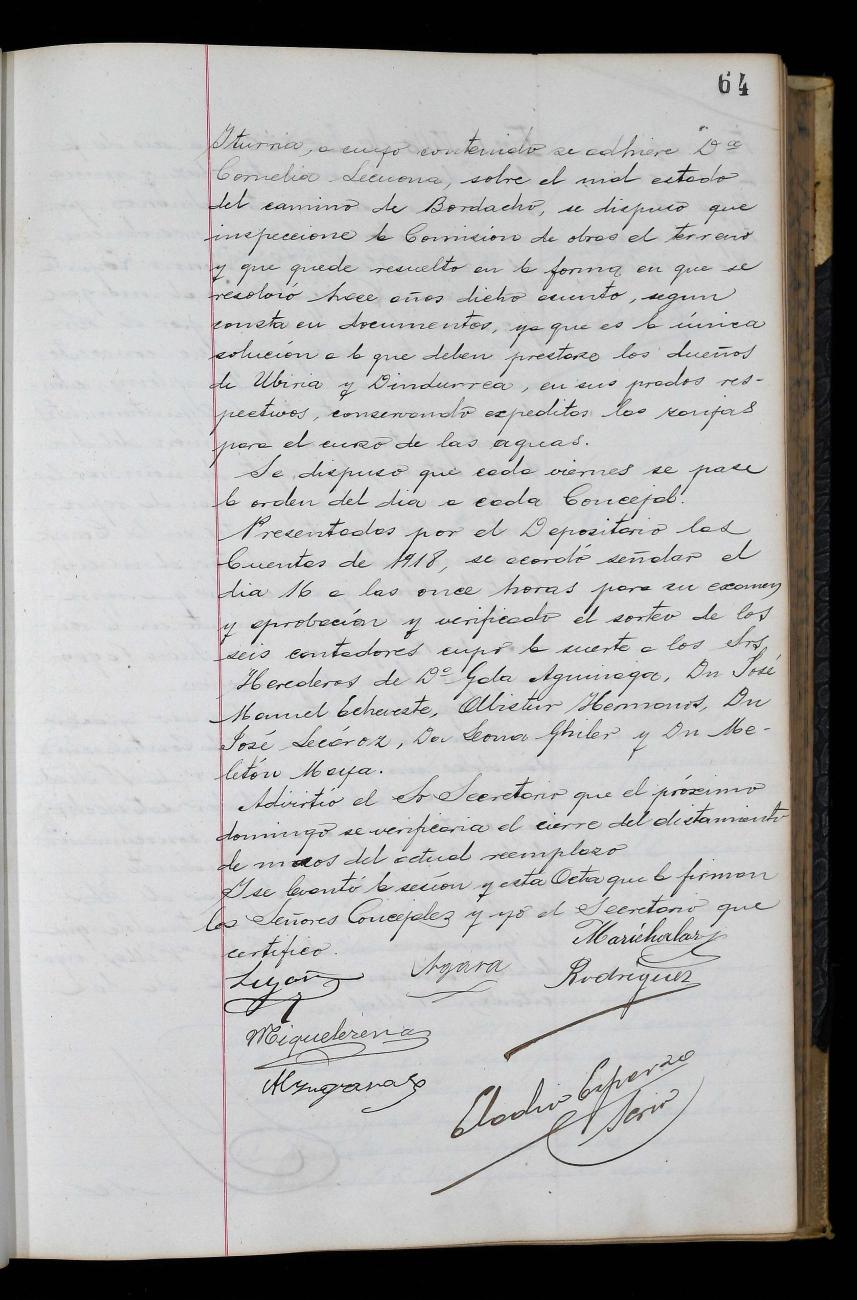 64
Iturria, a cuyo contenido se adhiere Dª
Cornelia Lecuona, sobre el mal estado
del camino de Bordacho, se dispuso que
inspeccione la Comisión de obras el terreno
y que quede resuelto en la forma en que se
resolvió hace años dicho asunto, segun
consta en documentos, ya que es la única
solución a la que deben prestarse los dueños
de Ubiria y Dindurrea, en sus prados res-
pectivos, conservando expeditas las zanjas
para el curso de las aguas.
Se dispuso que cada viernes se pase
la orden del dia a cada Concejal.
Presentadas por el Depositario las
Cuentas de 1918, se acordó señalar el
dia 16 a las once horas para su examen
y aprobación y verificado el sorteo de los
seis contadores cupo la suerte a los Srs
Herederos de Dº Gda Aguinaga, Dn José
Manuel Echeveste, Olbistur Hermanos, Dn
José Lecároz, Da Leona Ghiler y Dn Me-
letón Maya.
Advirtió el Sr Secretario que el próximo
domingo se verificaria el cierre del alistamiento
de mozos del actual reemplazo
Y se levantó la sesión y esta Acta que la firman
los Señores Concejalez y yo el Secretario que
certifico.
Marichalar
Rodriguez
Miquelerena
Eladio Esparza
Serio